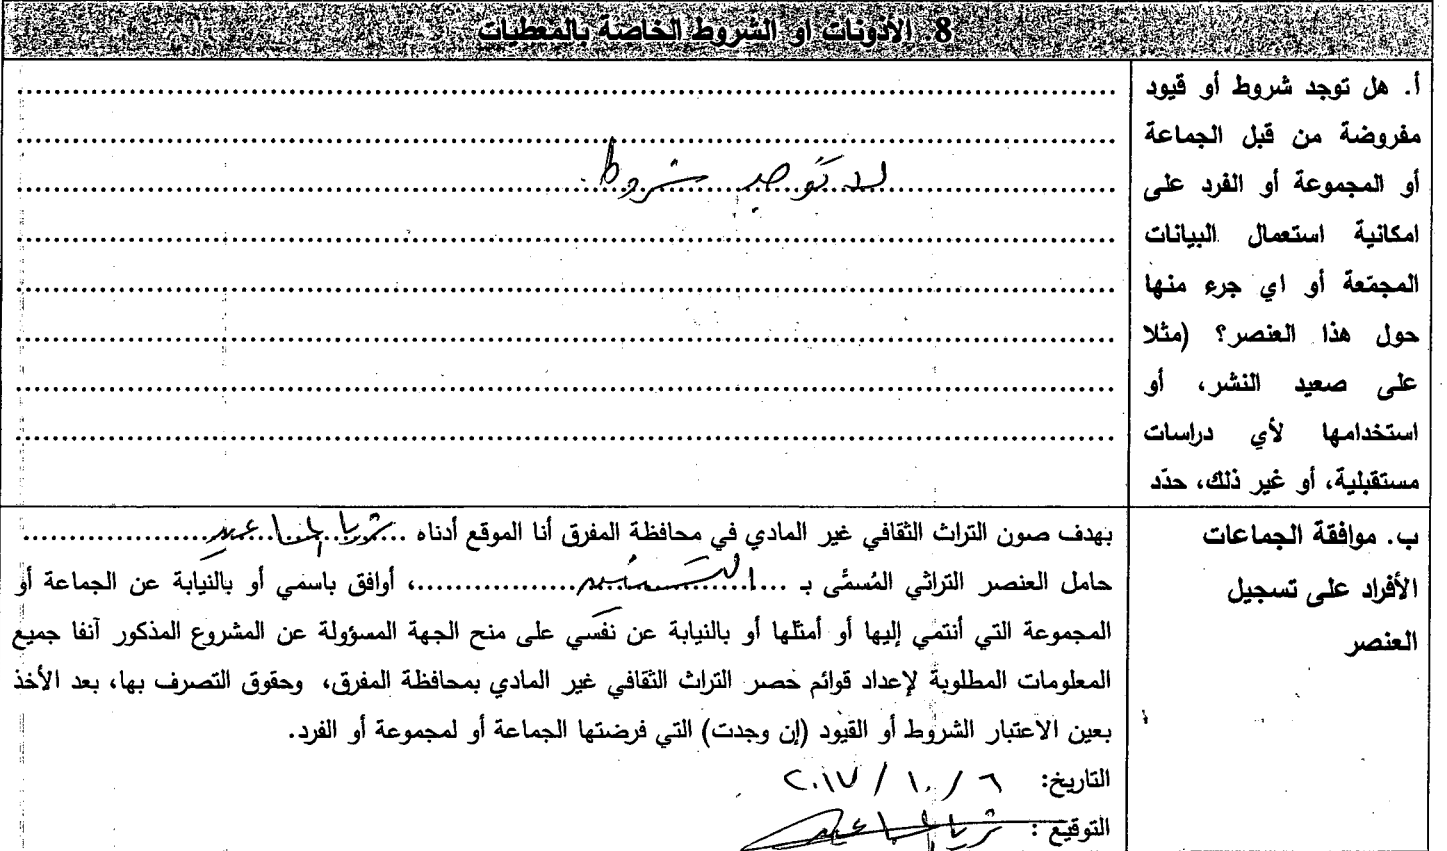 8. الأذونات او الشروط الخاصة بالمعطيات
أ. هل توجد شروط أو قيود
مفروضة من قبل الجماعة
أو المجموعة أو الفرد على
امكانية استعمال البيانات
المجمّعة أو اي جزء منها
حول هذا العنصر؟ (مثلا
على صعيد النشر، أو
استخدامها لأي دراسات
مستقبلية، أو غير ذلك، حدّد
لا توجد شروط.
ب. موافقة الجماعات
الأفراد على تسجيل
العنصر
بهدف صون التراث الثقافي غير المادي في محافظة المفرق أنا الموقع أدناه ...ثريا...
حامل العنصر التراثي المُسمَّى بـ ......، أوافق باسمي أو بالنيابة عن الجماعة أو
المجموعة التي أنتمي إليها أو أمثلها أو بالنيابة عن نفسي على منح الجهة المسؤولة عن المشروع المذكور آنفا جميع
المعلومات المطلوبة لإعداد قوائم حصر التراث الثقافي غير المادي بمحافظة المفرق، وحقوق التصرف بها، بعد الأخذ
بعين الاعتبار الشروط أو القيود (إن وجدت) التي فرضتها الجماعة أو لمجموعة أو الفرد.
التاريخ: ٦ / ١٠ / ٢٠١٧
التوقيع : ثريا